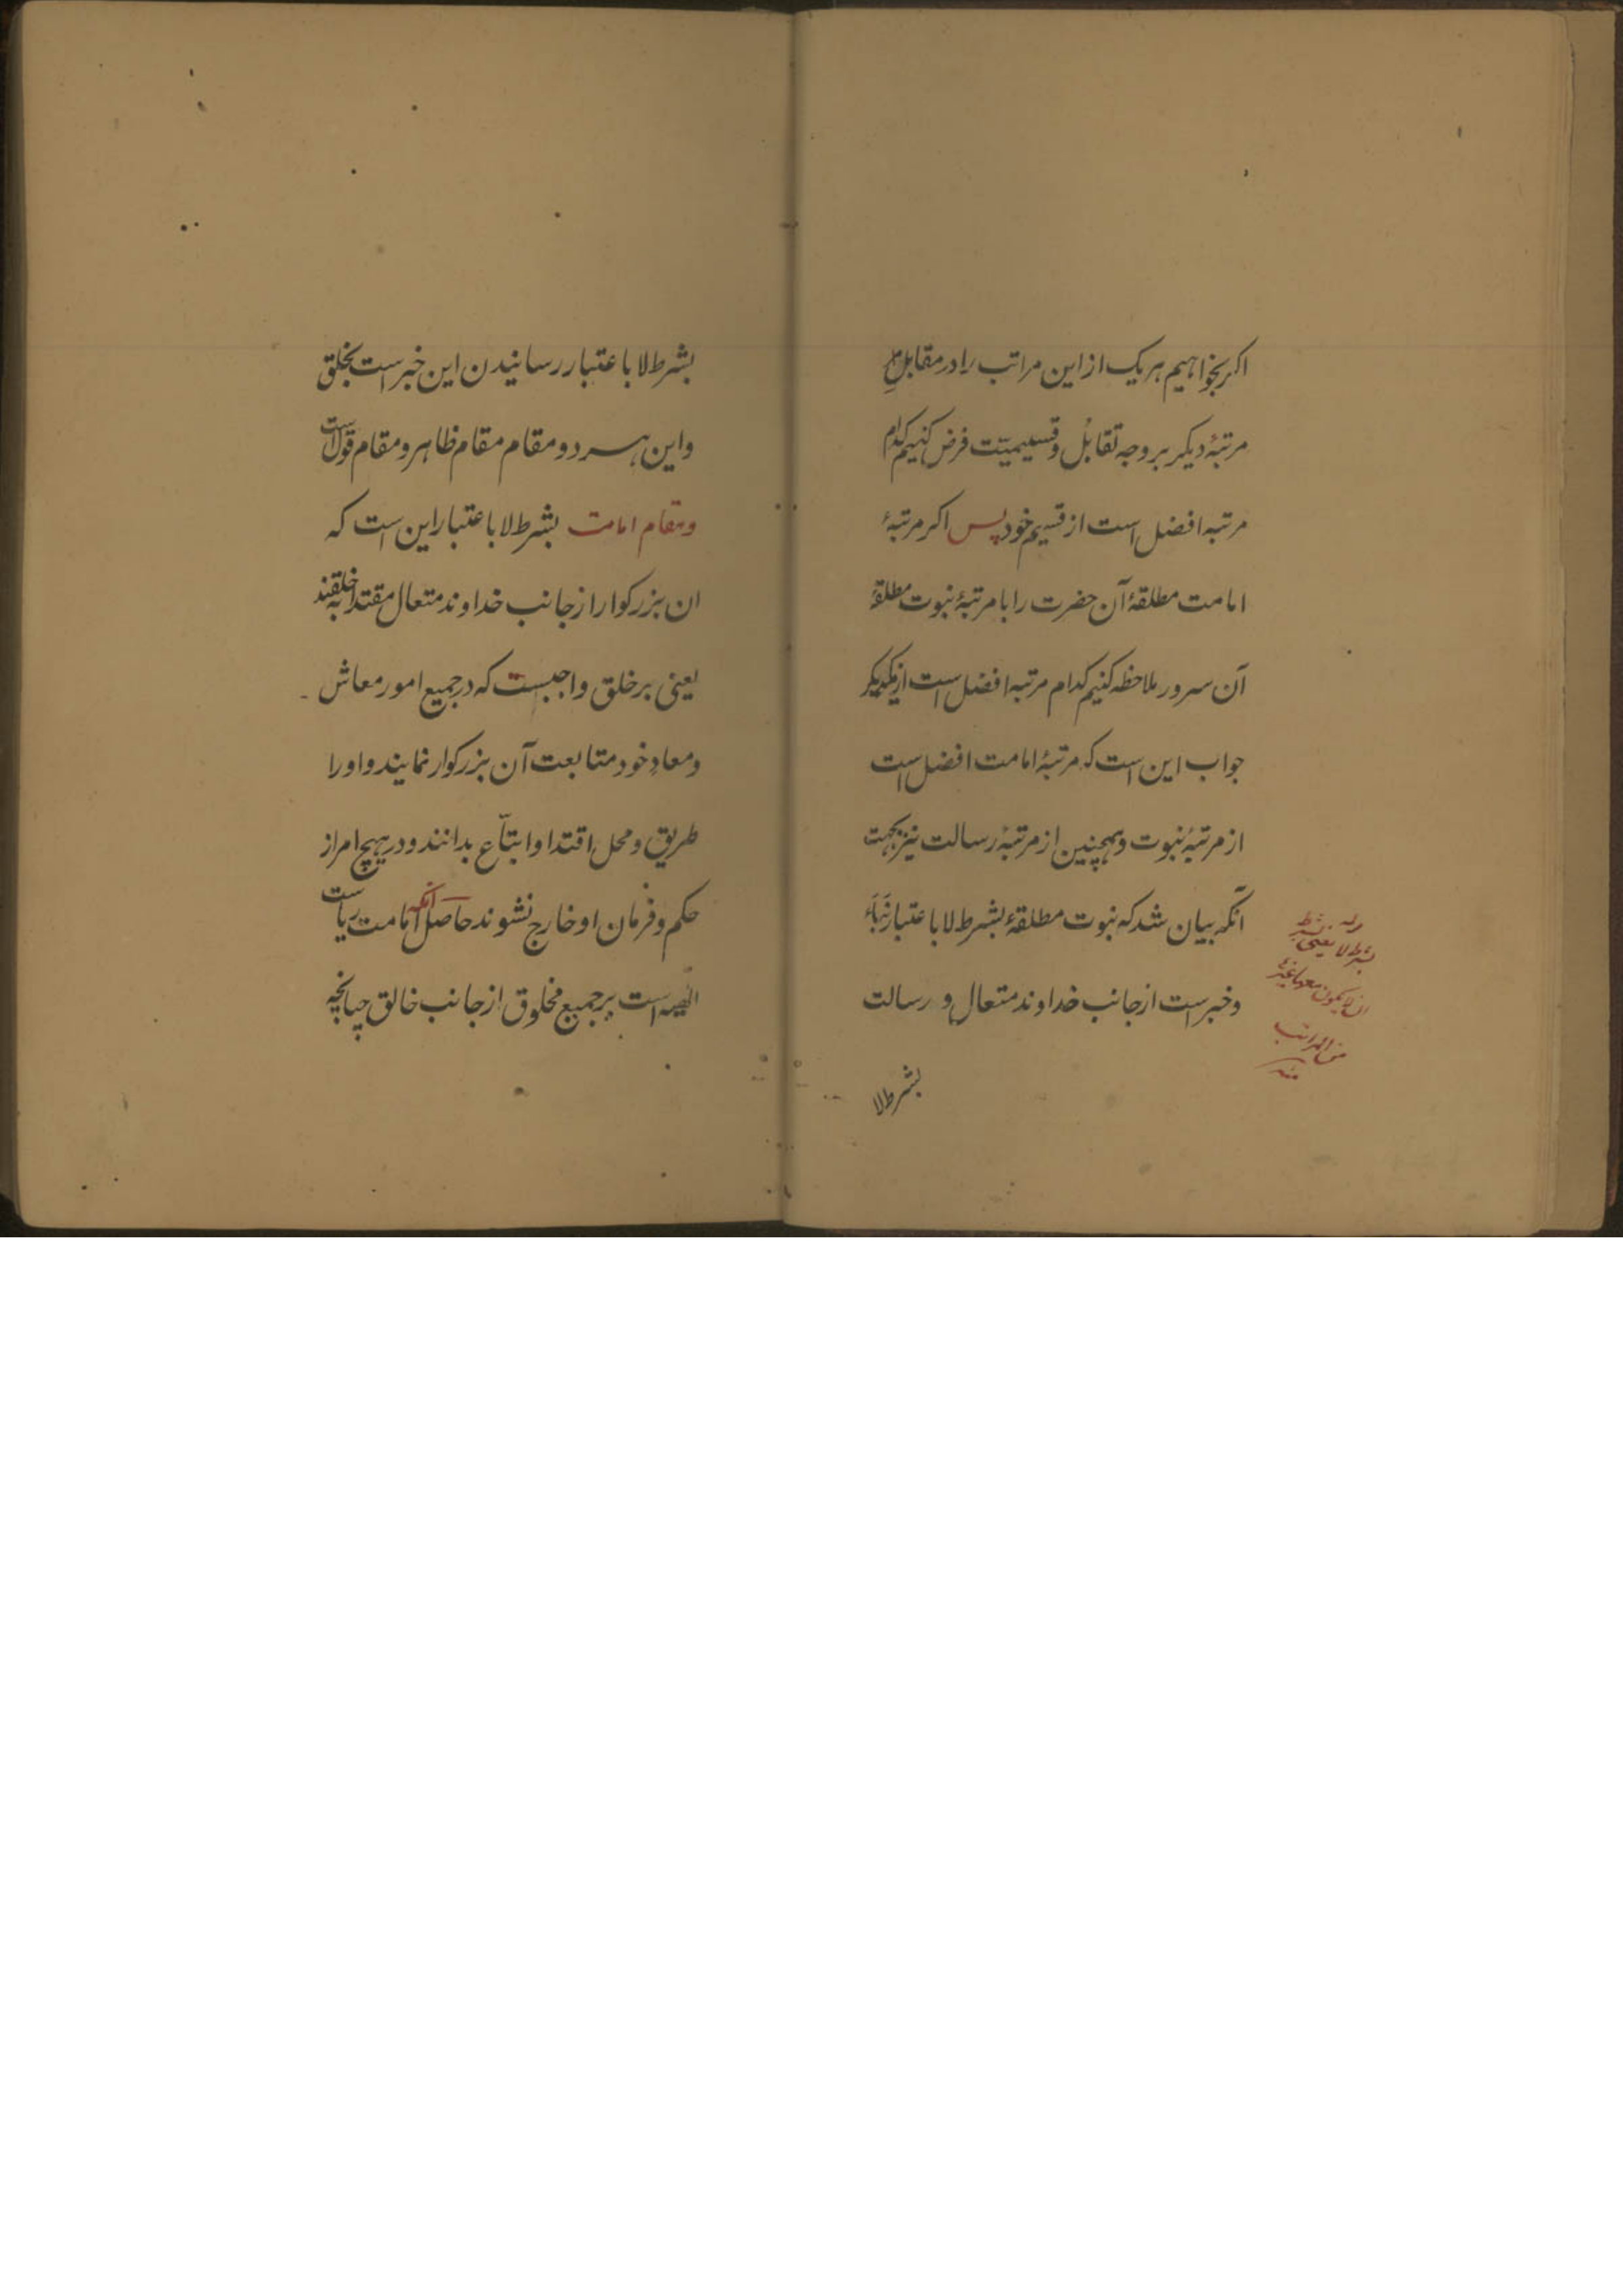 اکر بخواهیم هر یک از این مراتب را در مقابل
مرتبهٔ دیکر بر وجه تقابُل و قسیمیّت فرض کنیم کدام
مرتبه افضل است از قسیم خود پس اکر مرتبهٔ
امامت مطلقهٔ آن حضرت را با مرتبهٔ نبوت مطلقهٔ
آن سرور ملاحظه کنیم کدام مرتبه افضل است از یکدیکر
جواب این است که مرتبهٔ امامت افضل است
از مرتبهٔ نبوت و همچنین از مرتبهٔ رسالت نیز بجهت
آنکه بیان شد که نبوت مطلقهٔ بشرط لا باعتبار نَبَاء
و خبر است از جانب خداوند متعال و رسالت
بشرط لا
بشرط لا یعنی بشرط
ان لا یکون معها غیرها
من المراتب
منه
بشرط لا باعتبار رسانیدن این خبر است بخلق
و این هر دو مقام مقام ظاهر و مقام قولست
و مقام امامت بشرط لا باعتبار این است که
ان بزرکوار از جانب خداوند متعال مقتدا به خلقند
یعنی بر خلق واجبست که در جمیع امور معاش
و معادِ خود متابعت آن بزرکوار نمایند و او را
طریق و محل اقتدا و اتباع بدانند و در هیچ امر از
حکم و فرمان او خارج نشوند حاصل آنکه امامت ریاست
الهیه است بر جمیع مخلوق از جانب خالق چنانچه